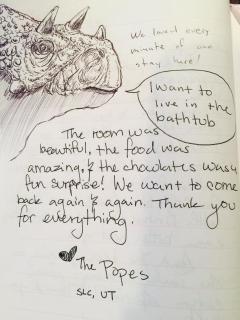 We loved every
minute of our
stay here!
I want to
live in the
bathtub
The room was
beautiful, the food was
amazing, & the chocolates was a
fun surprise! We want to come
back again & again. Thank you
for everything.
The Popes
SLC, UT